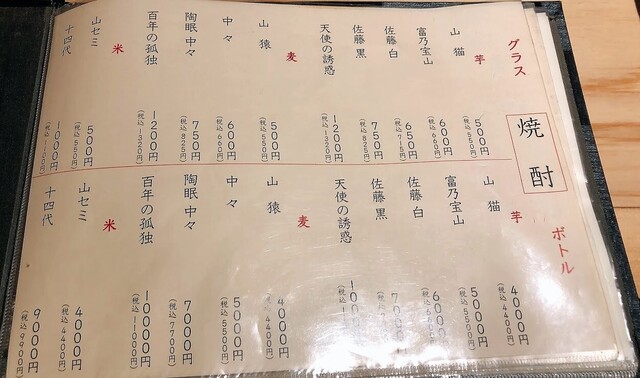 焼酎
グラス
芋
山猫 500円 (税込550円)
富乃宝山 600円 (税込660円)
佐藤 白 650円 (税込715円)
佐藤 黒 750円 (税込825円)
天使の誘惑 1200円 (税込1320円)
麦
山猿 500円 (税込550円)
中々 600円 (税込660円)
陶眠 中々 750円 (税込825円)
百年の孤独 1200円 (税込1320円)
米
山セミ 500円 (税込550円)
十四代 1000円 (税込1100円)
ボトル
芋
山猫 4000円 (税込4400円)
富乃宝山 5000円 (税込5500円)
佐藤 白 6000円
佐藤 黒
天使の誘惑
麦
山猿 4000円 (税込4400円)
中々 5000円 (税込5500円)
陶眠 中々 7000円 (税込7700円)
百年の孤独 10000円 (税込11000円)
米
山セミ 4000円 (税込4400円)
十四代 9000円 (税込9900円)